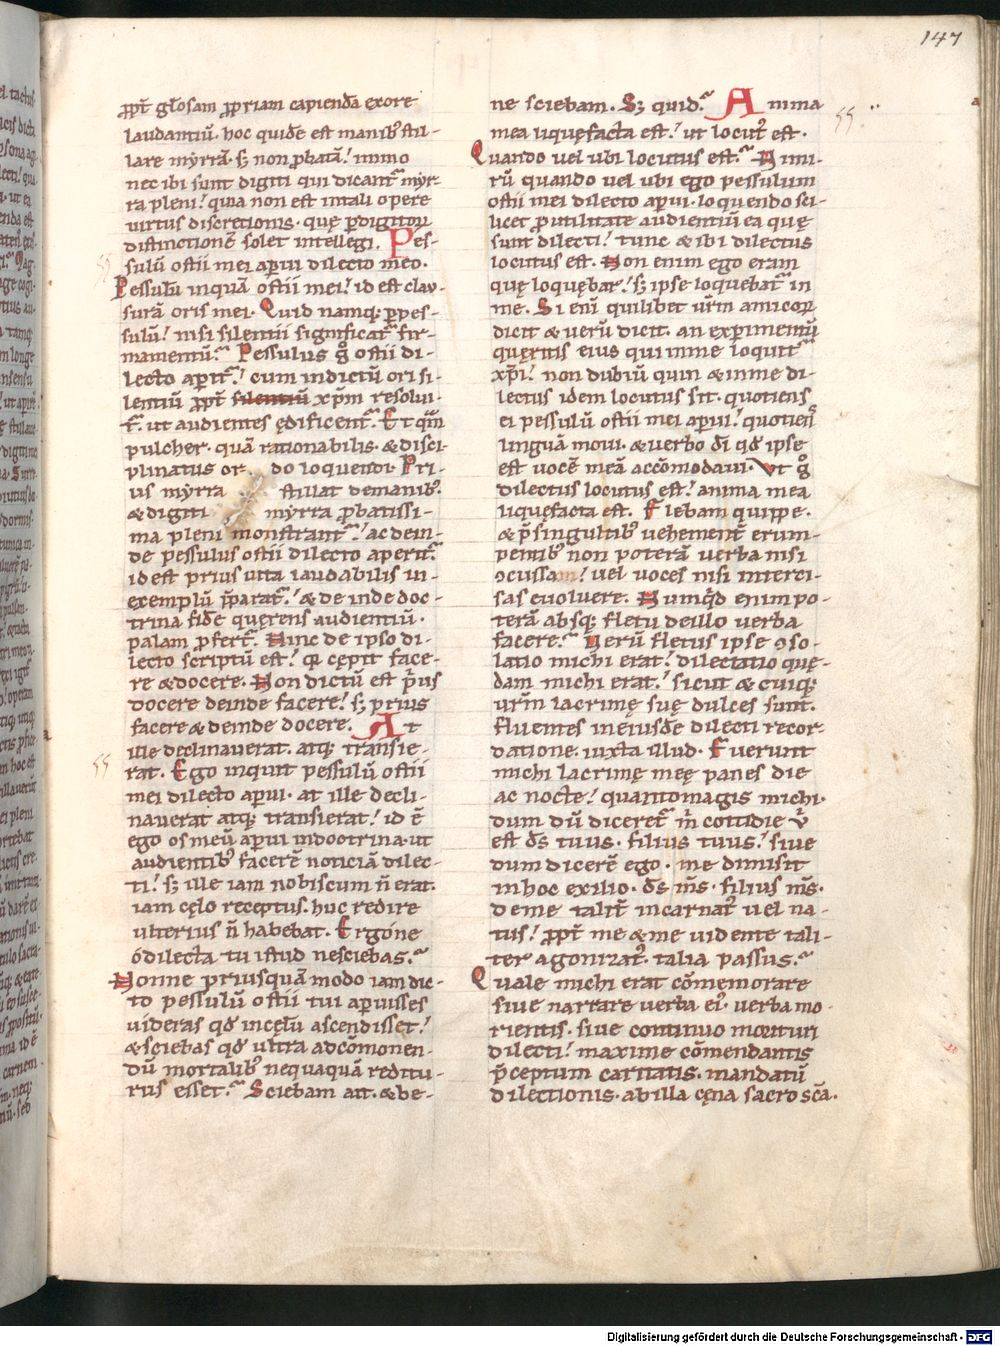 147
ꝓpt̄ glosam ꝓpriam capienda exore
laudantiū. hoc quidē est manibꝰ stil-
lare myrrā. sꝫ non ꝓbatā. immo
nec ibi sunt digiti qui dicant᷑ myr-
ra pleni. quia non est in tali opere
virtus discretionis. quę ꝑ digitorꝝ
distinctionē solet intellegi. Pes-
sulū ostii mei aꝑui dilecto meo.
Pessulū inquā ostii mei. id est clau-
surā oris mei. Quid namqꝫ ꝑ pes-
sulū. nisi silentii significat᷑ fir-
mamentū. Pessulus gͦ ostii di-
lecto aꝑit᷑. cum indictū ori si-
lentiū ꝓpt̄ silentiū xp̄m resolui-
t᷑. ut audientes ędificent᷑. Et quā
pulcher. quā rationabilis. & disci-
plinatus or do loquendi. Pri-
us myrra stillat de manibꝰ.
& digiti myrra ꝓbatissi-
ma pleni monstrant᷑. ac dein-
de pessulus ostii dilecto aperit᷑.
id est prius uita laudabilis in
exemplū p̄parat᷑. & de inde doc-
trina fidē quęrens audientiū.
palam ꝓfert᷑. Hinc de ipso di-
lecto scriptū est. qꝛ cępit face-
re & docere. Non dictū est p̄us
docere deinde facere. sꝫ prius
facere & deinde docere. At
ille declinauerat. atqꝫ transie-
rat. Ego inquit pessulū ostii
mei dilecto aꝑui. at ille decli-
nauerat atqꝫ transierat. id ē
ego os meū aꝑui in doctrina. ut
audientibꝰ facerē noticiā dilec-
ti. sꝫ ille iam nobiscum n̄ erat.
iam cęlo receptus. huc redire
ulterius n̄ habebat. Ergo ne
o dilecta tu istud nesciebas.
Nonne priusquā modo iam dic-
to pessulū ostii tui aꝑuisses
videras qđ in cęlū ascendisset.
& sciebas qđ ultra ad cōmonen-
dū mortalibꝰ nequaquā reditu-
rus esset. Sciebam ait. & be-
ne sciebam. Sꝫ quid. Anima
mea liquęfacta est. ut locutꝰ est.
Quando uel ubi locutus est. Nimi-
rū quando uel ubi ego pessulum
ostii mei dilecto aꝑui. loquendo sci-
licet ꝓ utilitate audientiū ea quę
sunt dilecti. tunc & ibi dilectus
locutus est. Non enim ego eram
quę loquębar. sꝫ ipse loquebat᷑ in
me. Si eni quilibet ur̄m amicorꝝ
dicit & uerū dicit. an experimentū
quęritis eius qui in me loquit᷑
xp̄i. non dubiū quin & in me di-
lectus idem locutus sit. quotiens
ei pessulū ostii mei aꝑui. quotiens
linguā moui. & uerbo dī qđ ipse
est uocē meā accōmodaui. Vt gͦ
dilectus locutus est. anima mea
liquęfacta est. Flebam quippe.
& p̄ singultibꝰ uehement̄ erum-
pentibꝰ non poterā uerba nisi
ꝯcussa. uel uoces nisi interci-
sas euoluere. Numqđ enim po-
terā absqꝫ fletu de illo uerba
facere. Verū fletus ipse ꝯso-
latio michi erat. dilectatio quę-
dam michi erat. sicut & cuiqꝫ
ur̄m lacrimę suę dulces sunt.
fluentes in eiusdē dilecti recor-
datione. iuxta illud. Fuerunt
michi lacrimę meę panes die
ac nocte. quanto magis michi.
dum dū diceret᷑ m̄ cottidie v̄
est d̄s tuus. filius tuus. siue
dum dicerē ego. me dimisit
in hoc exilio. d̄s m̄s. filius m̄s.
de me talit̄ incarnatꝰ uel na-
tus. ꝓpt̄ me & me uidente tali-
ter agonizat᷑. talia passus.
Quale michi erat cōmemorare
siue narrare uerba ei. uerba mo-
rientis. siue continuo morituri
dilecti. maxime cōmendantis
p̄ceptum caritatis. mandatū
dilectionis. ab illa cęna sacrosc̄a.
Digitalisierung gefördert durch die Deutsche Forschungsgemeinschaft - DFG